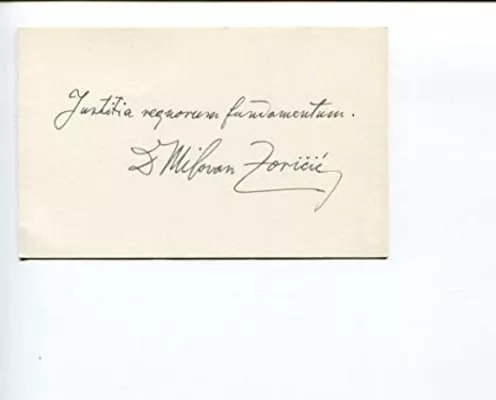 Justitia regnorum fundamentum.
Dr Milovan Zoričić